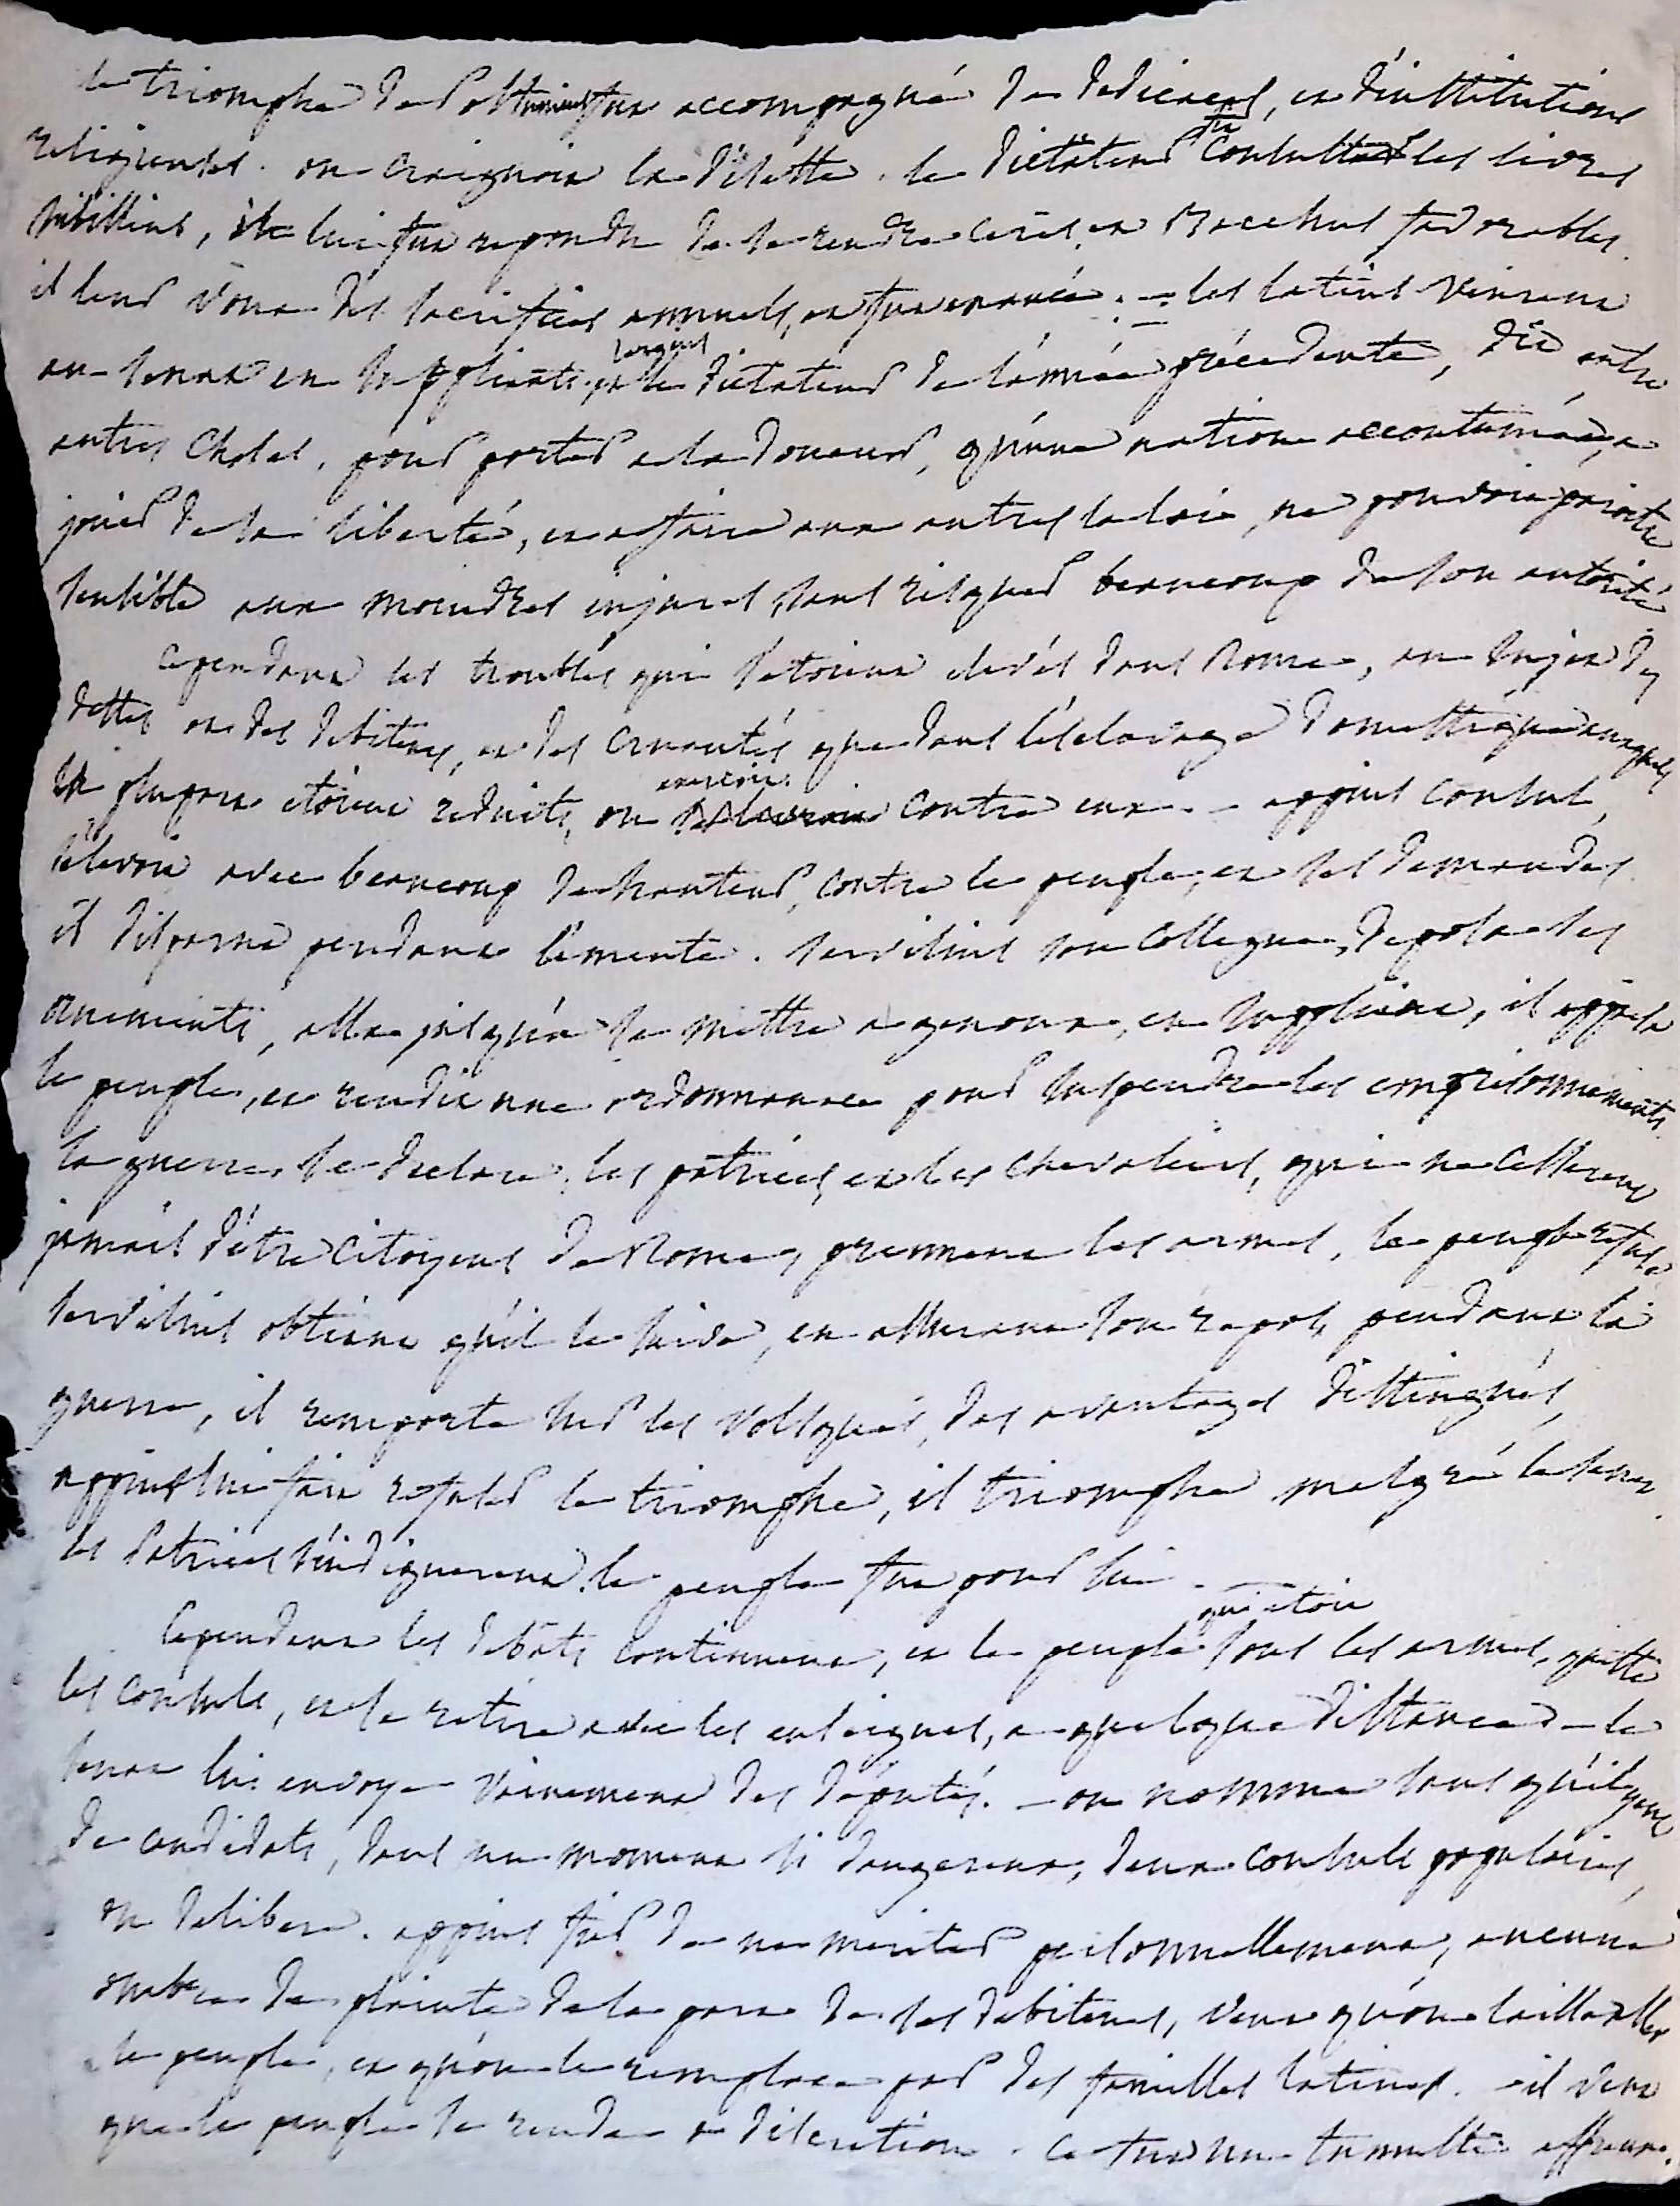 le triomphe de Posthumius fut accompagné de dedicaces, et d'institutions
religieuses. on craignoit la disette. le dictateur fit consulter les livres
sibillins, il lui fut repondu de se rendre Cerès, et Bacchus favorables.
il leur voua des sacrifices annuels, et fut exaucé. — les latins vinrent
au senat en suppliants, et largius le dictateur de l'année précédente, dit entre
autres choses, pour porter à la douceur, qu'une nation accoutumée, a
jouir de sa liberté, et a faire aux autres la loi, ne pouvoit paroitre
sensible aux moindres injures, sans risquer beaucoup de son autorité
cependant les troubles qui s'etoient elevés dans Rome, au sujet des
dettes ou des debiteurs, et des cruautés que dans l'esclavage domestique auxquels
la plupart etoient reduits, on exercoit contre eux. — appius consul,
s'elevoit avec beaucoup de hauteur, contre le peuple, et ses demandes.
il disparut pendant l'emeute. Servilius son collegue, deposa ses
ornements, alla jusqu'a se mettre a genoux, en suppliant, il appela
le peuple, et rendit une ordonnance pour suspendre les emprisonnements.
la guerre se declare, les patrices, et les chevaliers, qui ne cesserent
jamais d'être citoyens de Rome, prennent les armes, le peuple refuse
Servilius obtient qu'il le suive, en assurant son repos, pendant la
guerre, il remporte sur les volsques, des avantages distingués,
appius lui fait refuser le triomphe, il triomphe malgré le senat.
les Patrices s'indignerent, le peuple fut pour lui. —
Cependant les debats continuent, et le peuple qui etoit sous les armes, quitte
les consuls, et se retire avec les enseignes, a quelque distance — le
senat lui envoye vainement des députés. — on nomme sans qu'il y eut
de candidats, dans un moment si dangereux, deux consuls populaires,
on delibere. appius fier de ne meriter personnellement, aucune
ombre de plainte de la part de ses debiteurs, veut qu'on laisse aller
le peuple, et qu'on le remplace par des familles latines. — il veut
que le peuple se rende a discretion. ce fut un tumulte affreux.